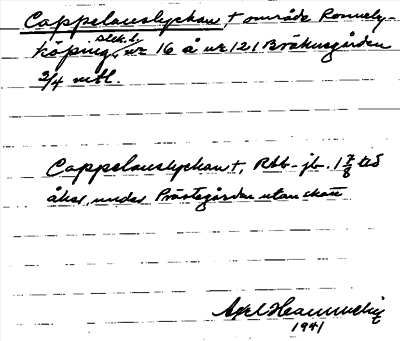 Cappelanslyckan, † område Ronneby-
köping, nr 16 å nr 121 Bräknsgården
3/4 mtl.
Cappelanslyckan †, Rbb-jb. 1 7/8 tld
åker, under Prästegården utan skatt
1941